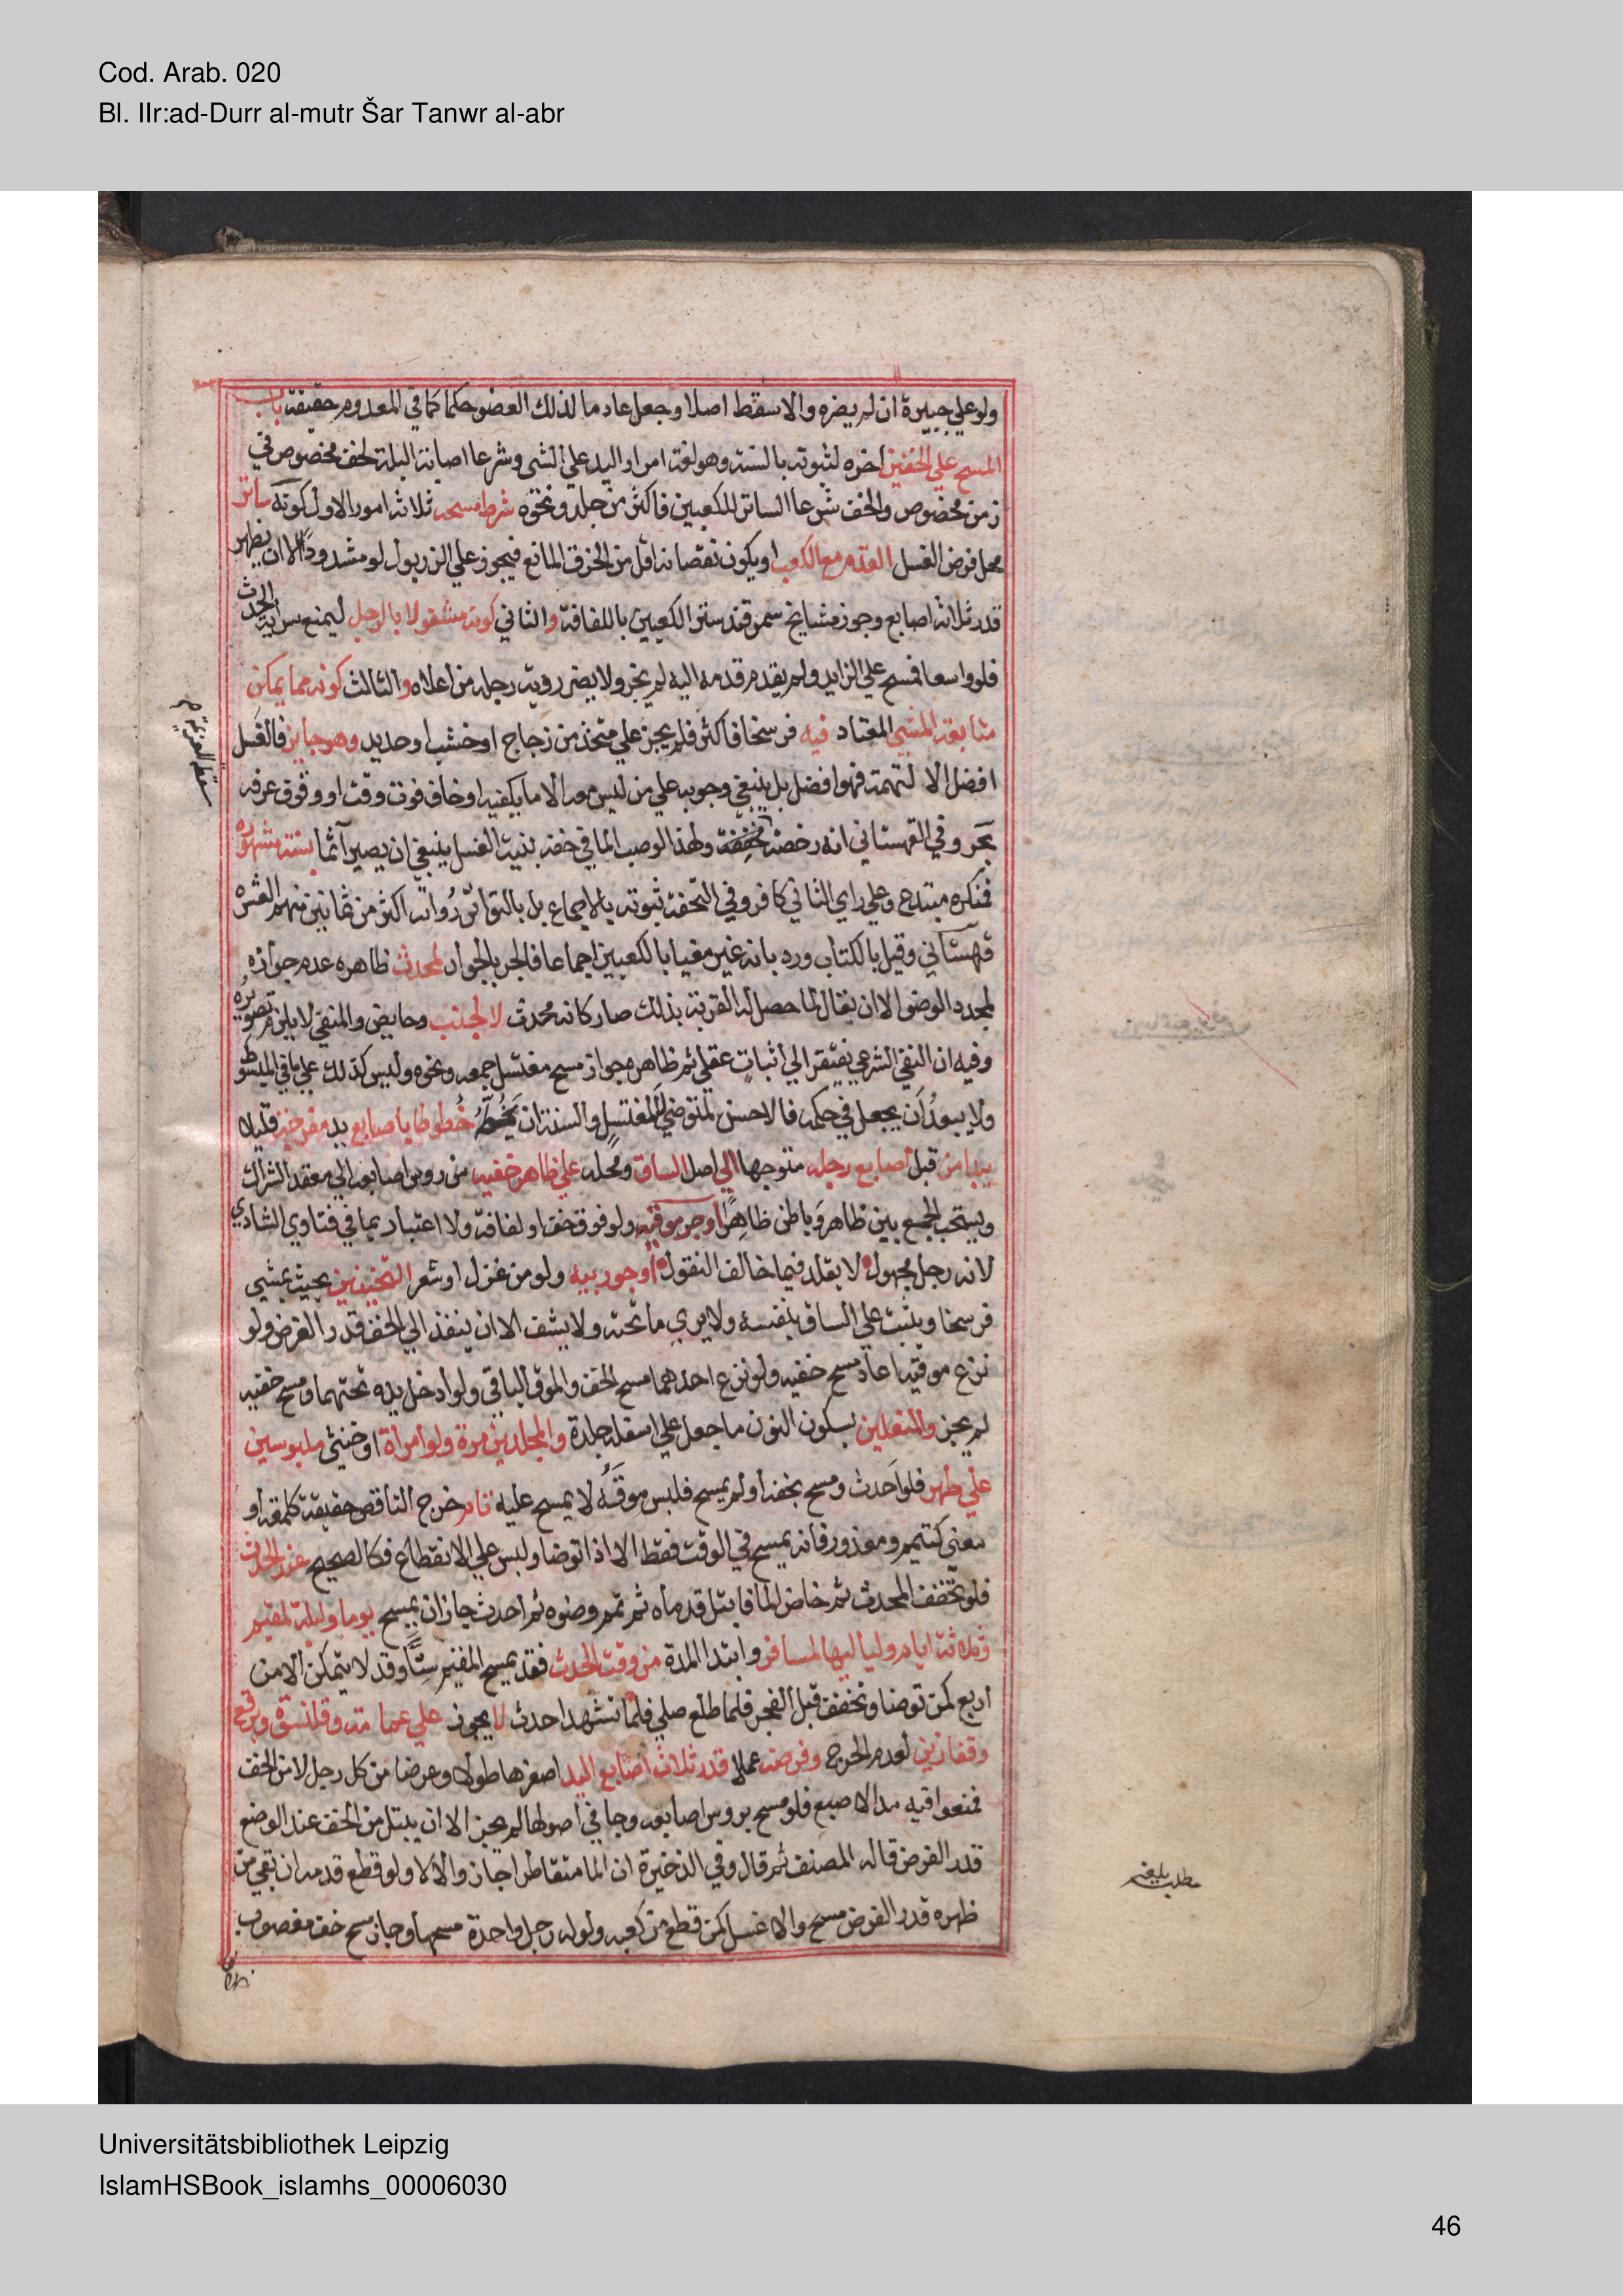 Cod. Arab. 020
Bl. IIr:ad-Durr al-mutr Šar Tanwr al-abr
ولو علي جبيرة ان لم يضره والا سقط اصلا وجعل عادما لذلك العضو حكما كما في المعدوم حقيقة باب
المسح علي الخفين اخره لثبوته بالسنة وهو لغة امرار اليد علي الشي وشرعا اصابة البلة لخف مخصوص في
زمن مخصوص والخف شرعا الساتر للكعبين فاكثر من جلد ونحوه شرط مسحه ثلاثة امور الاول كونه ساتر
محل فرض الغسل القدم مع الكعب او يكون نقصانه اقل من الخرق المانع فيجوز علي الزربول لو مشدودا الا ان يظهر
قدر ثلاثة اصابع وجوز مشايخ سمرقند ستر الكعبين باللفافة والثاني كونه مشغولا بالرجل ليمنع سراية الحدث
فلو واسعا فمسح علي الزايد ولم يقدم قدمه اليه لم يجز ولا يضر روية رجله من اعلاه والثالث كونه مما يمكن
متابعة المشي المعتاد فيه فرسخا فاكثر فلم يجز علي متخذ من زجاج او خشب او حديد وهو جايز فالغسل
افضل الا لتهمة فهو افضل بل ينبغي وجوبه علي من ليس معه الا ما يكفيه او خاف فوت وقت او وقوف عرفة
بحر وفي القهستاني انه رخصة مخففة ولهذا لو صب الما في خفه بنية الغسل ينبغي ان يصير آثما بسنة مشهورة
فمنكره مبتدع وعلي راي الثاني كافر وفي التحفة ثبوته بالاجماع بل بالتواتر رواته اكثر من ثمانين منهم العشرة
قهستاني وقيل بالكتاب ورد بانه غير مغيا بالكعبين اجماعا فالجر بالجوار لمحدث ظاهره عدم جوازه
لمجدد الوضو الا ان يقال لما حصل له القربة بذلك صار كانه محدث لا لجنب وحايض والمنفي لا يلزم تصويره
وفيه ان النفي الشرعي يفتقر الي اثبات عقلي ثم ظاهره جواز مسح مغتسل جمعة ونحوه وليس كذلك علي ما في المبسوط
ولا يبعد ان يجعل في حكمه فالاحسن لمتوضي لا لمغتسل والسنة ان يخطه خطوطا باصابع يد مفرجة قليلا
يبدا من قبل اصابع رجله متوجها الي اصل الساق ومحله علي ظاهر خفيه من روس اصابعه الي معقد الشراك
ويستحب الجمع بين ظاهر وباطن ظاهر او جرموقيه ولو فوق خف او لفافة ولا اعتبار بما في فتاوي الشاذي
لانه رجل مجهول لا يقلد فيما خالف النقول او جوربيه ولو من غزل او شعر الثخينين بحيث يمشي
فرسخا ويثبت علي الساق بنفسه ولا يري ما تحته ولا يشف الا ان ينفذ الي الخف قدر الفرض ولو
نزع موقيه اعاد مسح خفيه ولو نزع احدهما مسح الخف والموق الباقي ولو ادخل يده تحتهما ومسح خفيه
لم يجز والمنعلين بسكون النون ما جعل علي اسفله جلدة والمجلدين مرة ولو امراة او خنثي ملبوسين
علي طهر فلو احدث ومسح بخفه او لم يمسح فلبس موقه لا يمسح عليه تام خرج الناقص حقيقة كلمعة او
معني كتيمم ومعذور فانه يمسح في الوقت فقط الا اذا توضا ولبس علي الانقطاع فكالصحيح عند الحدث
فلو تخفف المحدث ثم خاض الما فابتل قدماه ثم تمم وضوه ثم احدث جاز ان يمسح يوما وليلة لمقيم
وثلاثة ايام ولياليها لمسافر وابتدا المدة من وقت الحدث فقد يمسح المقيم ستا وقد لا يتمكن الا من
اربع كمن توضا وتخفف قبل الفجر فلما طلع صلي فلما تشهد احدث لا يجوز علي عمامة وقلنسوة وبرقع
وقفازين لعدم الحرج وفرضه عملا قدر ثلاث اصابع اليد اصغرها طولا وعرضا من كل رجل لا من الخف
فمنعوا فيه مد الاصبع فلو مسح بروس اصابعه وجافي اصولها لم يجز الا ان يبتل من الخف عند الوضع
قدر الفرض قاله المصنف ثم قال وفي الذخيرة ان الما متقاطرا جاز والا لا ولو قطع قدمه ان بقي من
ظهره قدر الفرض مسح والا غسل كمن قطع من كعبه ولو له رجل واحدة مسحها وجاز مسح خف مغصوب
Universitätsbibliothek Leipzig
IslamHSBook_islamhs_00006030
46